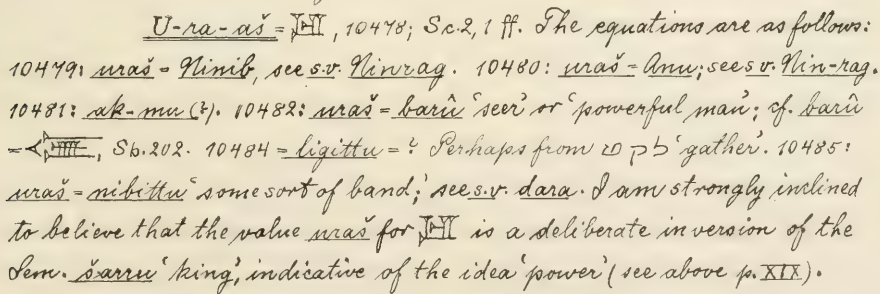 U-ra-aš = 𒅁, 10478; Sc. 2, 1 ff. The equations are as follows:
10479: uraš = Ninib, see s.v. Ninrag. 10480: uraš = Anu; see s.v. Nin-rag.
10481: ak-mu (?). 10482: uraš = barû ‘seer’ or ‘powerful man’; cf. barû
= , Sb. 202. 10484 = ligittu = ? Perhaps from לקט ‘gather’. 10485:
uraš = nibittu ‘some sort of band;’ see s.v. dara. I am strongly inclined
to believe that the value uraš for 𒅁 is a deliberate inversion of the
Sem. šarru ‘king’, indicative of the idea ‘power’ (see above p. XIX).